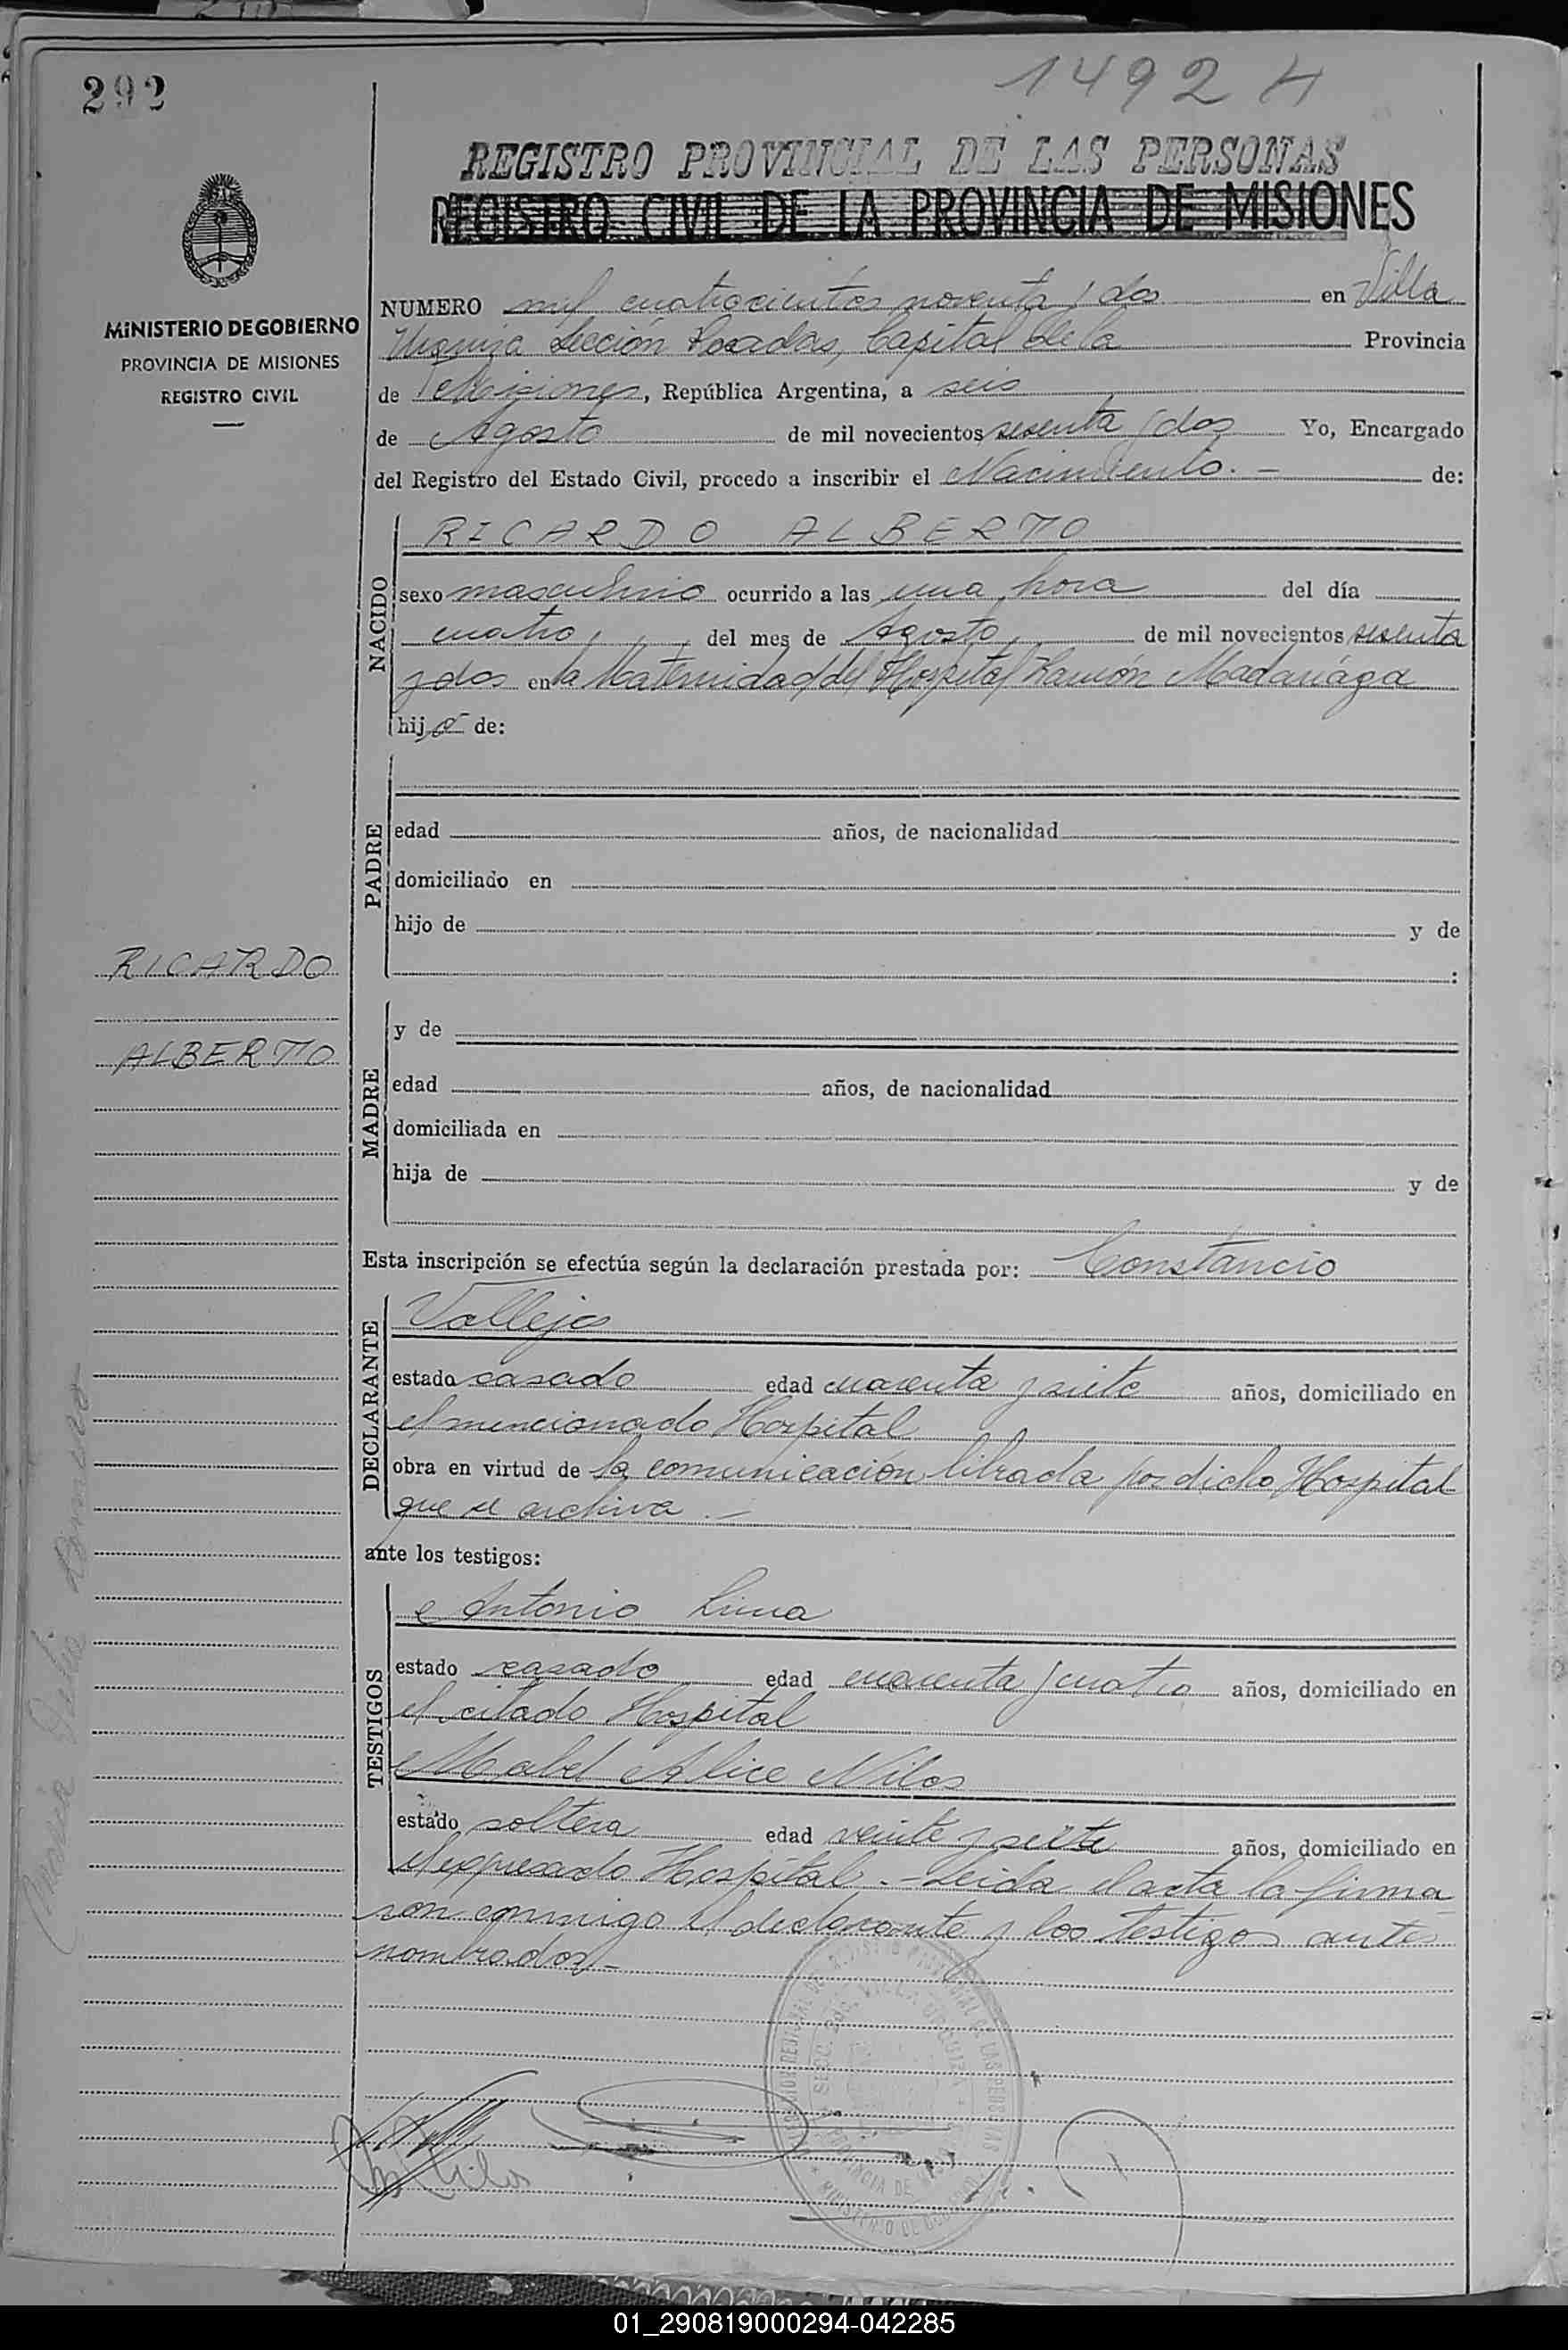 292
1492 H
REGISTRO PROVINCIAL DE LAS PERSONAS
REGISTRO CIVIL DE LA PROVINCIA DE MISIONES
MINISTERIO DE GOBIERNO
PROVINCIA DE MISIONES
REGISTRO CIVIL
NUMERO mil cuatrocientos noventa y dos en Villa
Urquiza Sección Posadas, Capital de la Provincia
de Misiones, República Argentina, a seis
de Agosto de mil novecientos sesenta y dos Yo, Encargado
del Registro del Estado Civil, procedo a inscribir el Nacimiento.- de:
NACIDO
RICARDO ALBERTO
sexo masculino ocurrido a las una hora del día
cuatro, del mes de Agosto, de mil novecientos sesenta
y dos en la Maternidad del Hospital Ramón Madariaga
hijo de:
PADRE
edad años, de nacionalidad
domiciliado en
hijo de y de
:
RICARDO
ALBERTO
MADRE
y de
edad años, de nacionalidad
domiciliada en
hija de y de
Esta inscripción se efectúa según la declaración prestada por: Constancio
DECLARANTE
Vallejos
estado casado edad cuarenta y siete años, domiciliado en
el mencionado Hospital
obra en virtud de la comunicación librada por dicho Hospital
que se archiva.-
ante los testigos:
TESTIGOS
Antonio Luna
estado casado edad cuarenta y cuatro años, domiciliado en
el citado Hospital
Mabel Alice Milos
estado soltera edad veinte y siete años, domiciliado en
el expresado Hospital.- Leída el acta la firma
ron conmigo el declarante y los testigos antes
nombrados-
SECC. 2da. VILLA URQUIZA
PROVINCIA DE
MINISTERIO DE GOBIERNO
01_290819000294-042285